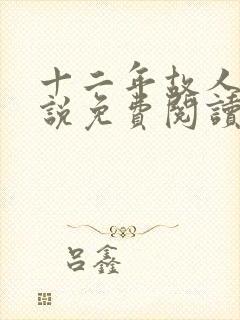 十二年故人
說免費閱讀
呂鑫